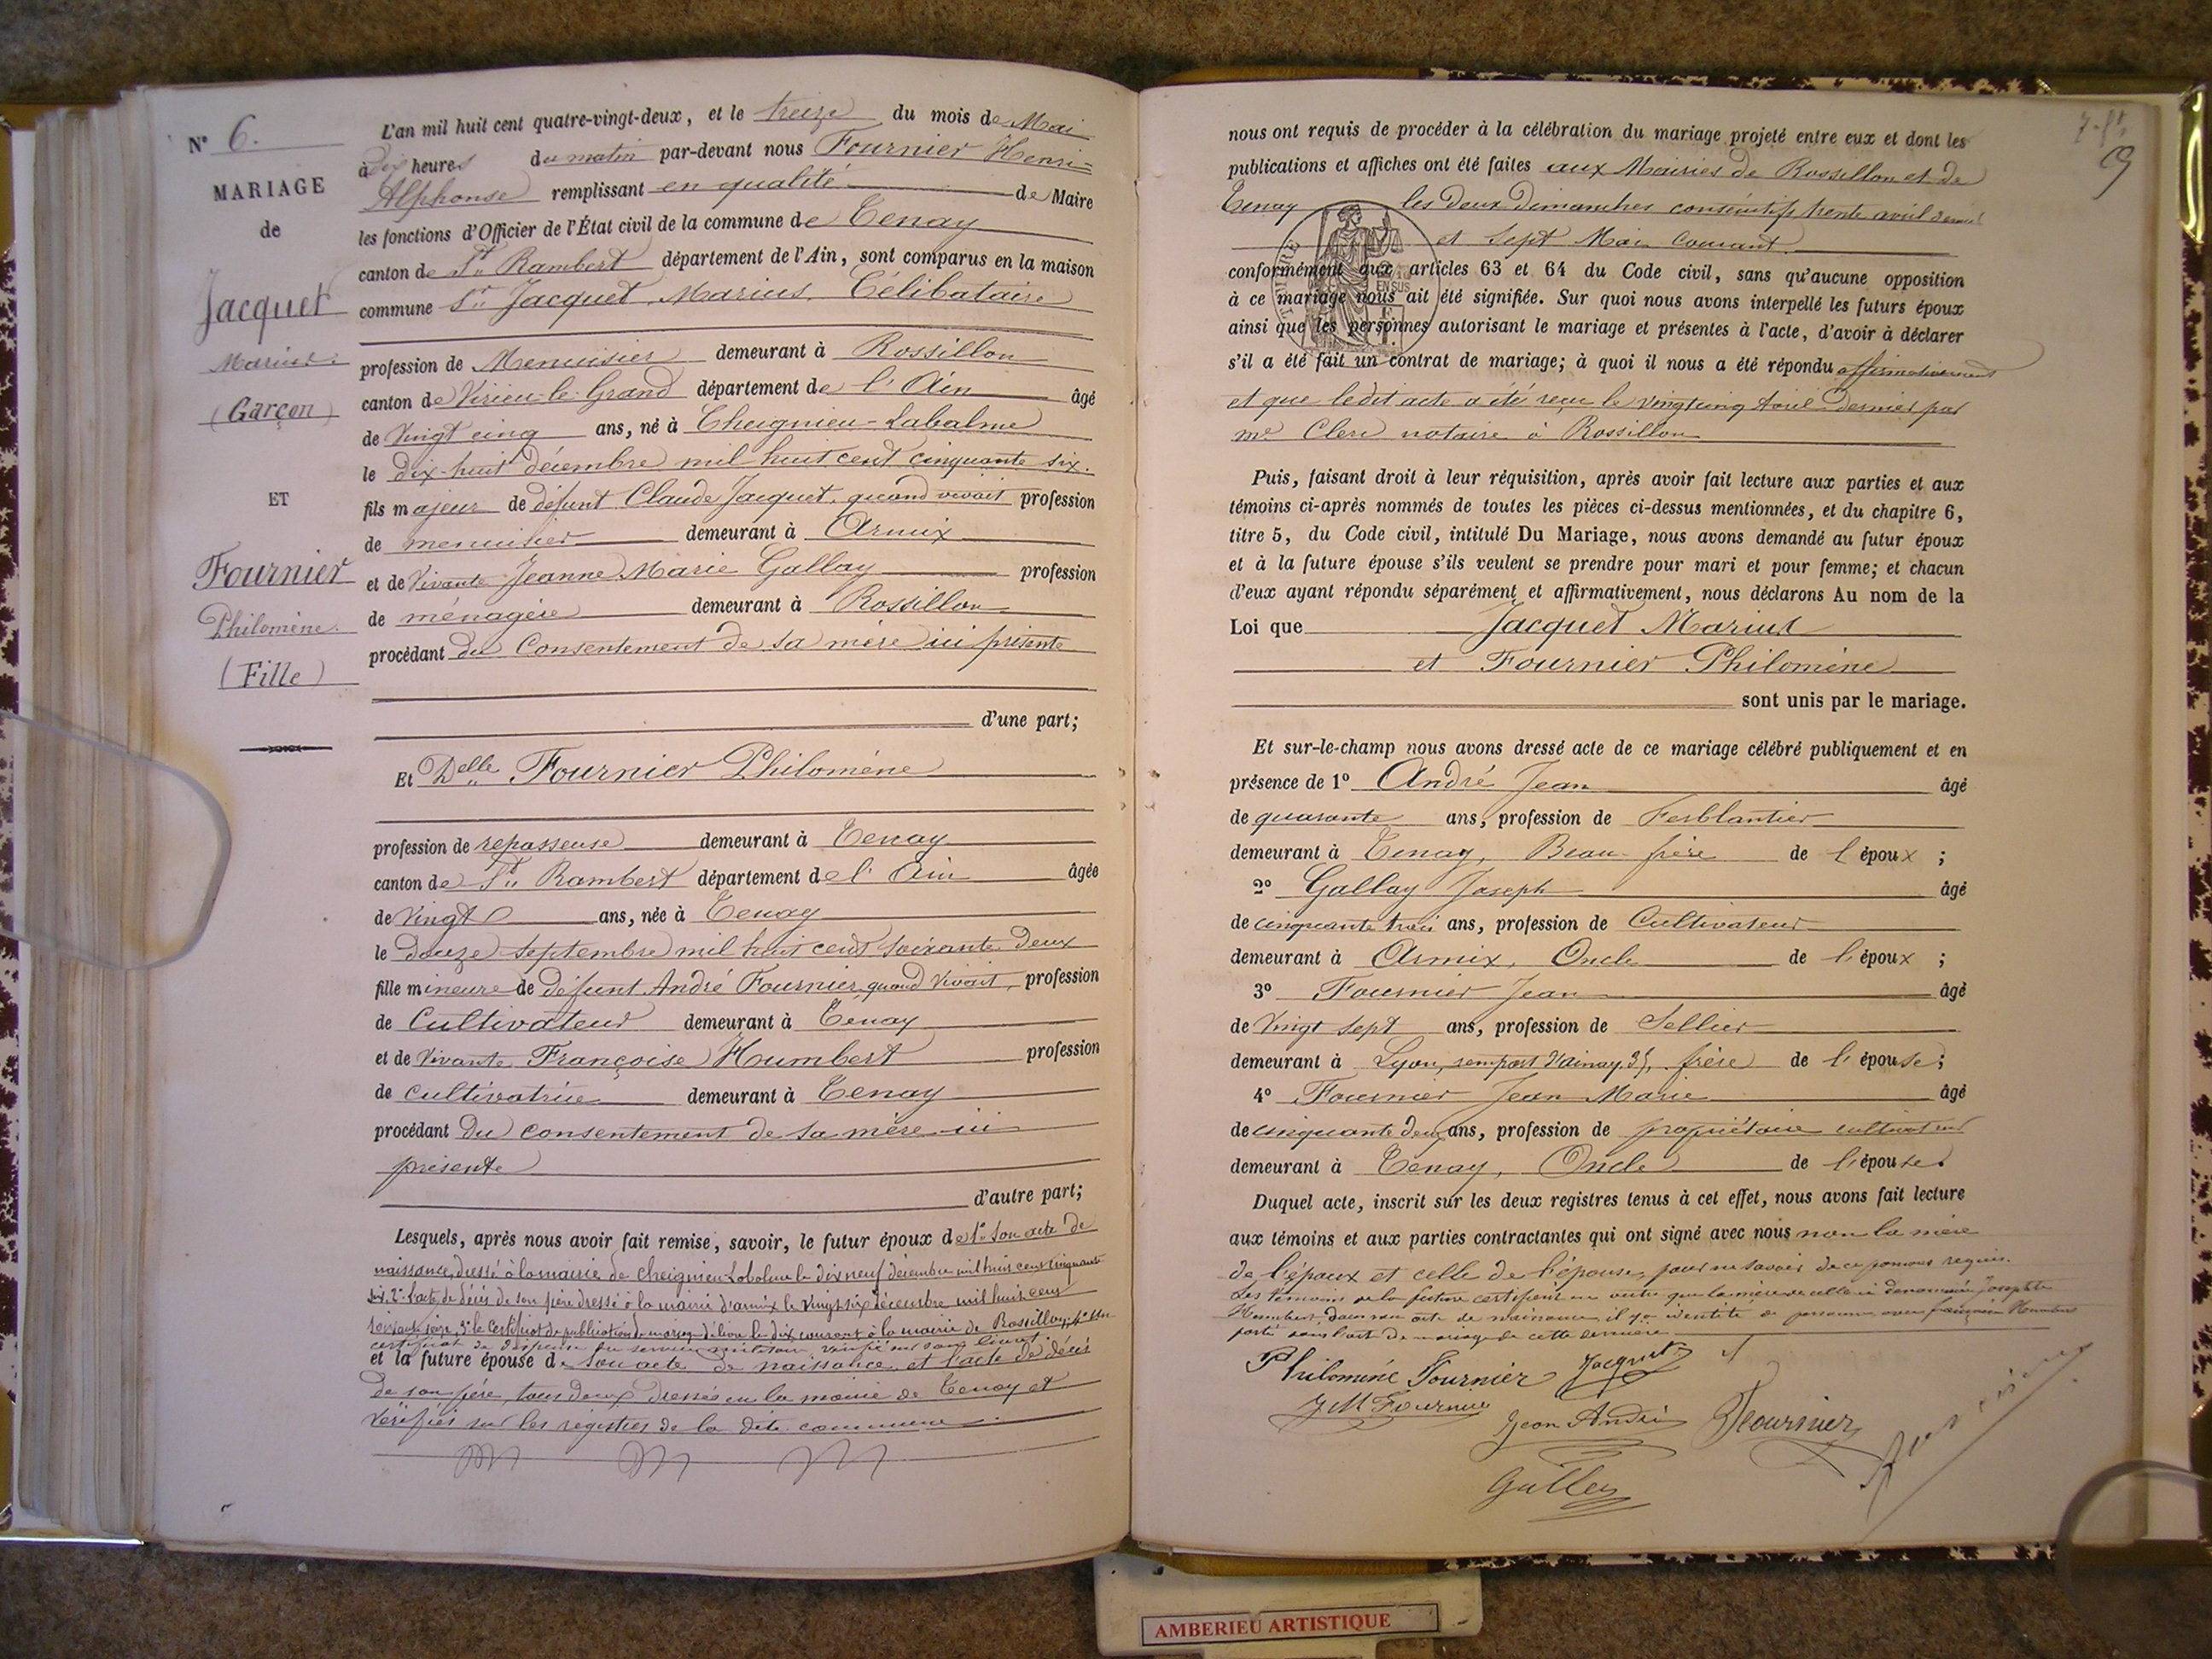 N° 6.
MARIAGE
de
Jacquet
Marius
(Garçon)
ET
Fournier
Philomène
(Fille)
L'an mil huit cent quatre-vingt-deux, et le treize du mois de Mai
à dix heures du matin par-devant nous Fournier Henri=
Alphonse remplissant en qualité de Maire
les fonctions d'Officier de l'État civil de la commune de Tenay
canton de St. Rambert département de l'Ain, sont comparus en la maison
commune Sr. Jacquet Marius. Célibataire
profession de Menuisier demeurant à Rossillon
canton de Virieu-le-Grand département de l'Ain âgé
de Vingt cinq ans, né à Cheignieu-Labalme
le dix-huit décembre mil huit cent cinquante six.
fils majeur de défunt Claude Jacquet, quand vivait profession
de menuisier demeurant à Armix
et de Vivante Jeanne Marie Gallay profession
de ménagère demeurant à Rossillon
procédant du Consentement de sa mère ici présente
d'une part;
Et Delle Fournier Philomène
profession de repasseuse demeurant à Tenay
canton de St. Rambert département de l'Ain âgée
de Vingt ans, née à Tenay
le Douze Septembre mil huit cent soixante Deux
fille mineure de défunt André Fournier, quand vivait, profession
de Cultivateur demeurant à Tenay
et de Vivante Françoise Humbert profession
de cultivatrice demeurant à Tenay
procédant Du consentement de sa mère ici
présente
d'autre part;
Lesquels, après nous avoir fait remise, savoir, le futur époux de 1° Son acte de
naissance, dressé à la mairie de Cheignieu Labalme le dix neuf décembre mil huit cent cinquante
six, 2° l'acte de décès de son père dressé à la mairie d'armix le vingt six décembre mil huit cent
soixante seize, 3° le Certificat de publication de mariage délivré le dix courant à la mairie de Rossillon, 4° Un
certificat de dispense du service militaire, vérifié sur son livret.
et la future épouse de Son acte de naissance et l'acte de décès
de son père, tous deux dressés en la mairie de Tenay et
Vérifiés sur les registres de la dite commune.
nous ont requis de procéder à la célébration du mariage projeté entre eux et dont les
publications et affiches ont été faites aux Mairies de Rossillon et de
Tenay les Deux Dimanches consécutifs trente avril dernier
et Sept Mai Courant
conformément aux articles 63 et 64 du Code civil, sans qu'aucune opposition
à ce mariage nous ait été signifiée. Sur quoi nous avons interpellé les futurs époux
ainsi que les personnes autorisant le mariage et présentes à l'acte, d'avoir à déclarer
s'il a été fait un contrat de mariage; à quoi il nous a été répondu affirmativement
et que ledit acte a été reçu le vingt cinq Avril Dernier par
me Clerc notaire à Rossillon
Puis, faisant droit à leur réquisition, après avoir fait lecture aux parties et aux
témoins ci-après nommés de toutes les pièces ci-dessus mentionnées, et du chapitre 6,
titre 5, du Code civil, intitulé Du Mariage, nous avons demandé au futur époux
et à la future épouse s'ils veulent se prendre pour mari et pour femme; et chacun
d'eux ayant répondu séparément et affirmativement, nous déclarons Au nom de la
Loi que Jacquet Marius
et Fournier Philomène
sont unis par le mariage.
Et sur-le-champ nous avons dressé acte de ce mariage célébré publiquement et en
présence de 1° André Jean âgé
de quarante ans, profession de Ferblantier
demeurant à Tenay, Beau-frère de l'époux ;
2° Gallay Joseph âgé
de cinquante trois ans, profession de Cultivateur
demeurant à Armix, Oncle de l'époux ;
3° Fournier Jean âgé
de Vingt Sept ans, profession de Sellier
demeurant à Lyon, rempart d'ainay, 35, frère de l'épouse;
4° Fournier Jean Marie âgé
de cinquante deux ans, profession de propriétaire cultivateur
demeurant à Tenay, Oncle de l'épouse.
Duquel acte, inscrit sur les deux registres tenus à cet effet, nous avons fait lecture
aux témoins et aux parties contractantes qui ont signé avec nous non la mère
de l'époux et celle de l'épouse, pour ne savoir de ce par nous requis.
Les témoins de la future certifient en outre que la mère de celle ci dénommée Josephte
Humbert dans son acte de naissance, il y a identité de personne avec françoise Humbert
porté dans l'acte de mariage de cette dernière
Philomène Fournier Jacquet
JM Fournier
Jean André Fournier
Gallay
AMBERIEU ARTISTIQUE